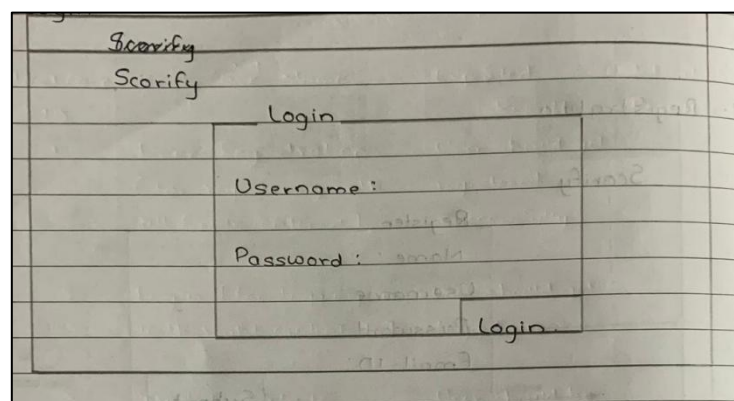 Scorify
Scorify
Login
Username :
Password :
Login